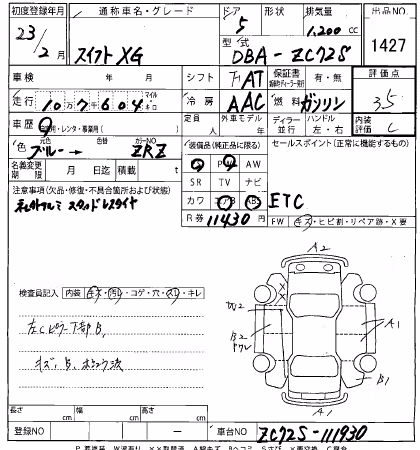 初度登録年月 通称車名・グレード ドア 形状 排気量 出品NO
23/2月 スイフト XG 5 1.200cc
型式 DBA-ZC72S 1427
車検 年 月 シフト AT 保証書 有・無 評価点
走行 10万7千604 マイル キロ 冷房 AAC 燃料 ガソリン 3.5
車歴 レンタ・事業用( ) 定員 人 外車モデル 年 ディーラー 並行 ハンドル 左・右 内装評価 C
色 元色 ブルー→ 色替 カラーNO ZRZ 装備品(純正品に限る) セールスポイント(正常に機能するもの)
名義変更期限 月 日迄 積載 t AW
SR TV ナビ
注意事項(欠品・修復・不具合箇所および状態) カワ エアB ABS ETC
スタッドレスタイヤ R券 11430円
FW キズ・ヒビ割・リペア跡・X要
A2
検査員記入 内装 キズ・汚レ・コゲ・穴・スレ・キレ
W2 A1
左Cピラー下部B, B2
キズ, B,
B1
A1
長さ cm 幅 cm 高さ cm
登録NO - 車台NO ZC72S-111930